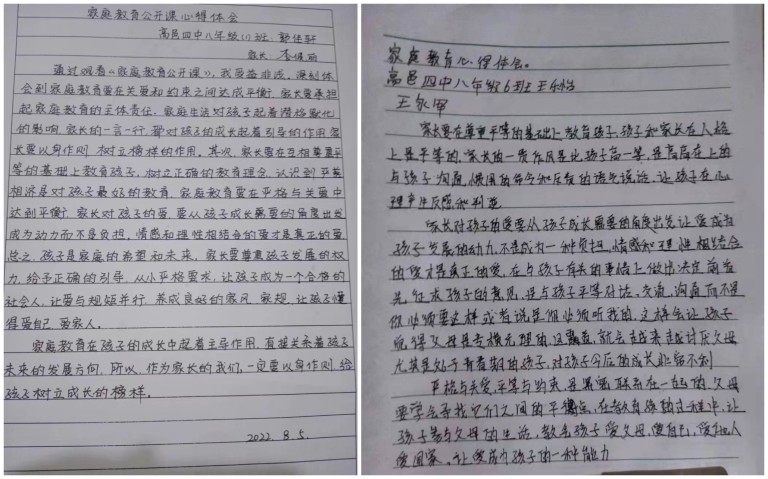 家庭教育公开课心得体会
高邑四中八年级(1)班 郭佳轩
家长 李
通过观看《家庭教育公开课》,我受益非浅。深刻体
会到家庭教育要在关爱和约束之间达成平衡,家长要承担
起家庭教育的主体责任,家庭生活对孩子起着潜移默化
的影响,家长的一言一行,都对孩子的成长起着引导的作用,家
长要以身作则,树立榜样的作用。其次,家长要在互相尊重平
等的基础上教育孩子,树立正确的教育理念,认识到严慈
相济是对孩子最好的教育,家庭教育要在严格与关爱中
达到平衡,家长对孩子的爱,要从孩子成长需要的角度出发
成为动力而不是负担,情感和理性相结合的爱才是真正的爱
总之,孩子是家庭的希望和未来,家长要尊重孩子发展的权
力,给予正确的引导,从小严格要求,让孩子成为一个合格的
社会人,让爱与规矩并行,养成良好的家风、家规,让孩子懂
得爱自己,爱家人。
家庭教育在孩子的成长中起着主导作用,直接关系着孩子
未来的发展方向,所以,作为家长的我们,一定要以身作则,给
孩子树立成长的榜样。
2022.8.5.
家庭教育心得体会。
高邑四中八年级6班王
王
家长要在尊重平等的基础上教育孩子,孩子和家长在人格
上是平等的,家长的一贯作风是比孩子高一等,是高高在上的
与孩子沟通,惯用的命令和反复的语气说话,让孩子在心
理产生反感和
家长对孩子的爱要从孩子成长需要的角度出发,让爱成为
孩子发展的动力,不是成为一种负担,情感和理性相结合
的爱才是真正的爱,在与孩子有关的事情上做出决定前首
先,征求孩子的意见,是与孩子平等对话,交流,沟通而不是
你必须要这样或者说是你必须听我的,这样会让孩子
觉得父母是专横无理的,这就会越来越讨厌父母
尤其是处于青春期的孩子,对孩子今后的成长非常不利
严格与关爱,平等与约束,是紧密联系在一起的,父母
要学会寻找它们之间的平衡点,在教育孩子的过程中,让
孩子参与父母的生活,教会孩子爱父母,爱自己,爱他人
爱国家,让爱成为孩子的一种能力